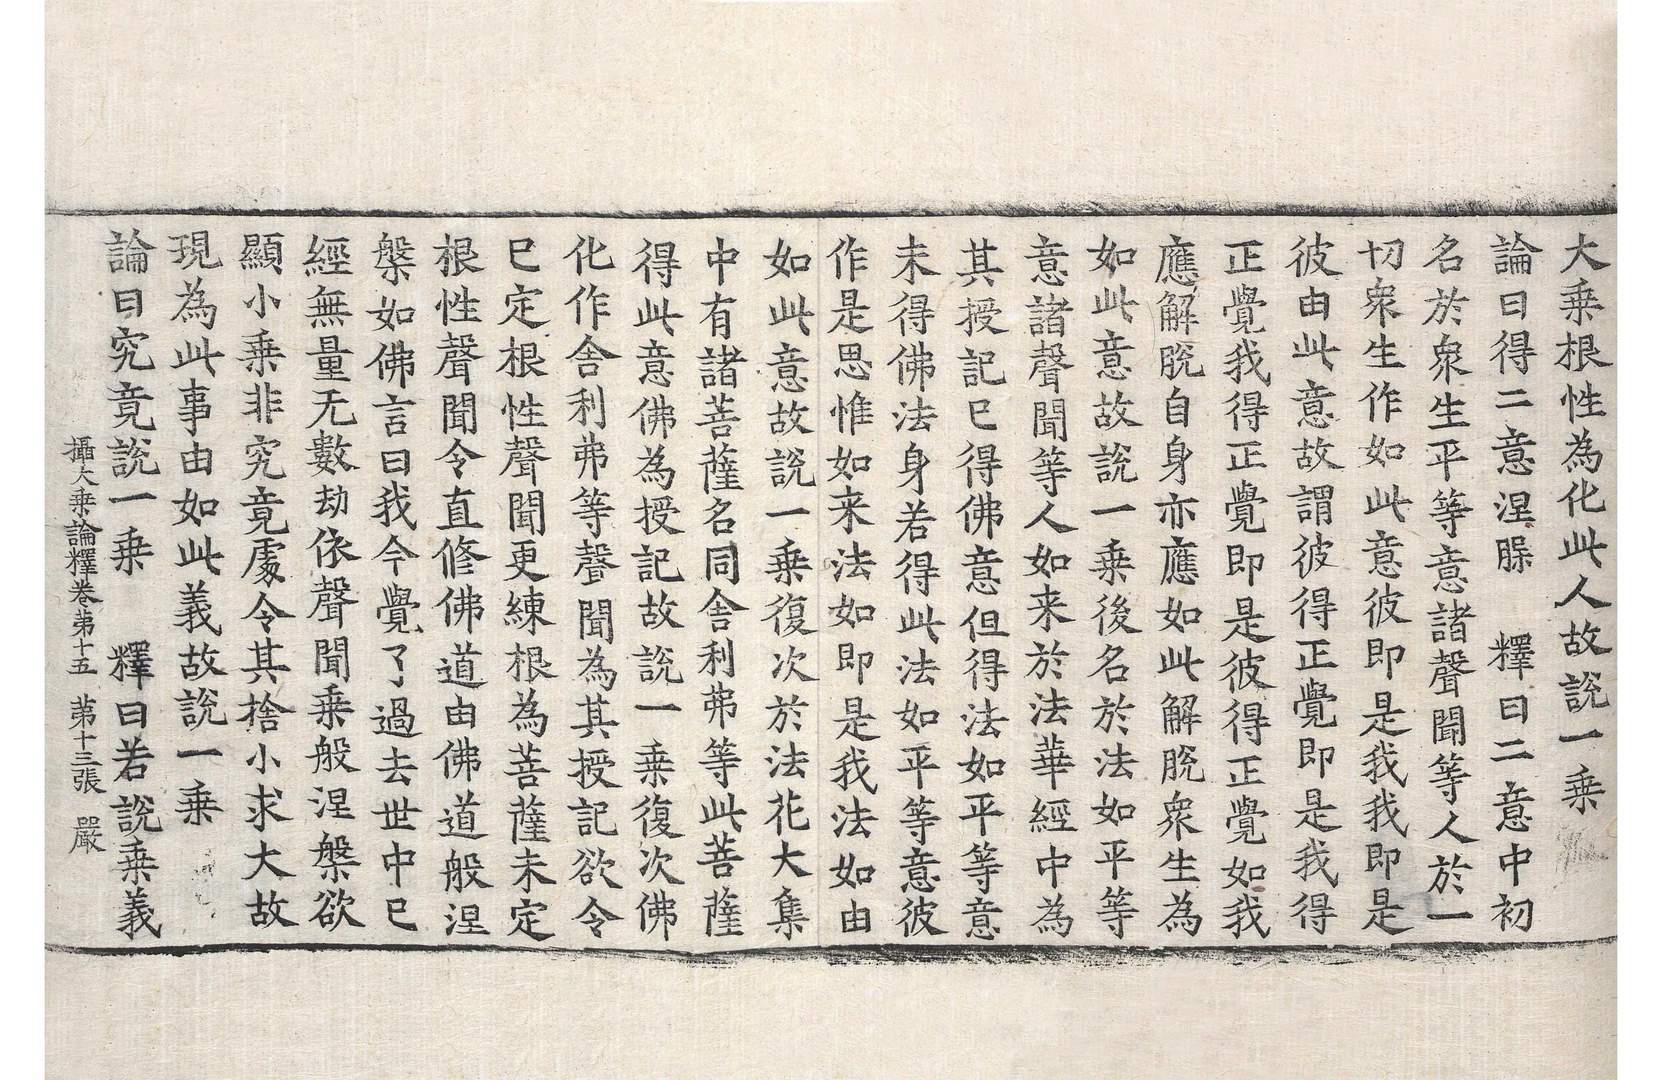 大乗根性為化此人故説一乗
論曰得二意涅槃　釋曰二意中初
名於衆生平等意諸聲聞等人於一
切衆生作如此意彼即是我我即是
彼由此意故謂彼得正覺即是我得
正覺我得正覺即是彼得正覺如我
應解脫自身亦應如此解脫衆生為
如此意故說一乗後名於法如平等
意諸聲聞等人如来於法華經中為
其授記已得佛意但得法如平等意
未得佛法身若得此法如平等意彼
作是思惟如来法如即是我法如由
如此意故說一乗復次於法花大集
中有諸菩薩名同舎利弗等此菩薩
得此意佛為授記故說一乗復次佛
化作舎利弗等聲聞為其授記欲令
已定根性聲聞更練根為菩薩未定
根性聲聞令直修佛道由佛道般涅
槃如佛言曰我今覺了過去世中已
經無量无數劫依聲聞乗般涅槃欲
顯小乗非究竟處令其捨小求大故
現為此事由如此義故說一乗
論曰究竟說一乗　釋曰若說乗義
攝大乗論釋卷第十五　第十三張　嚴